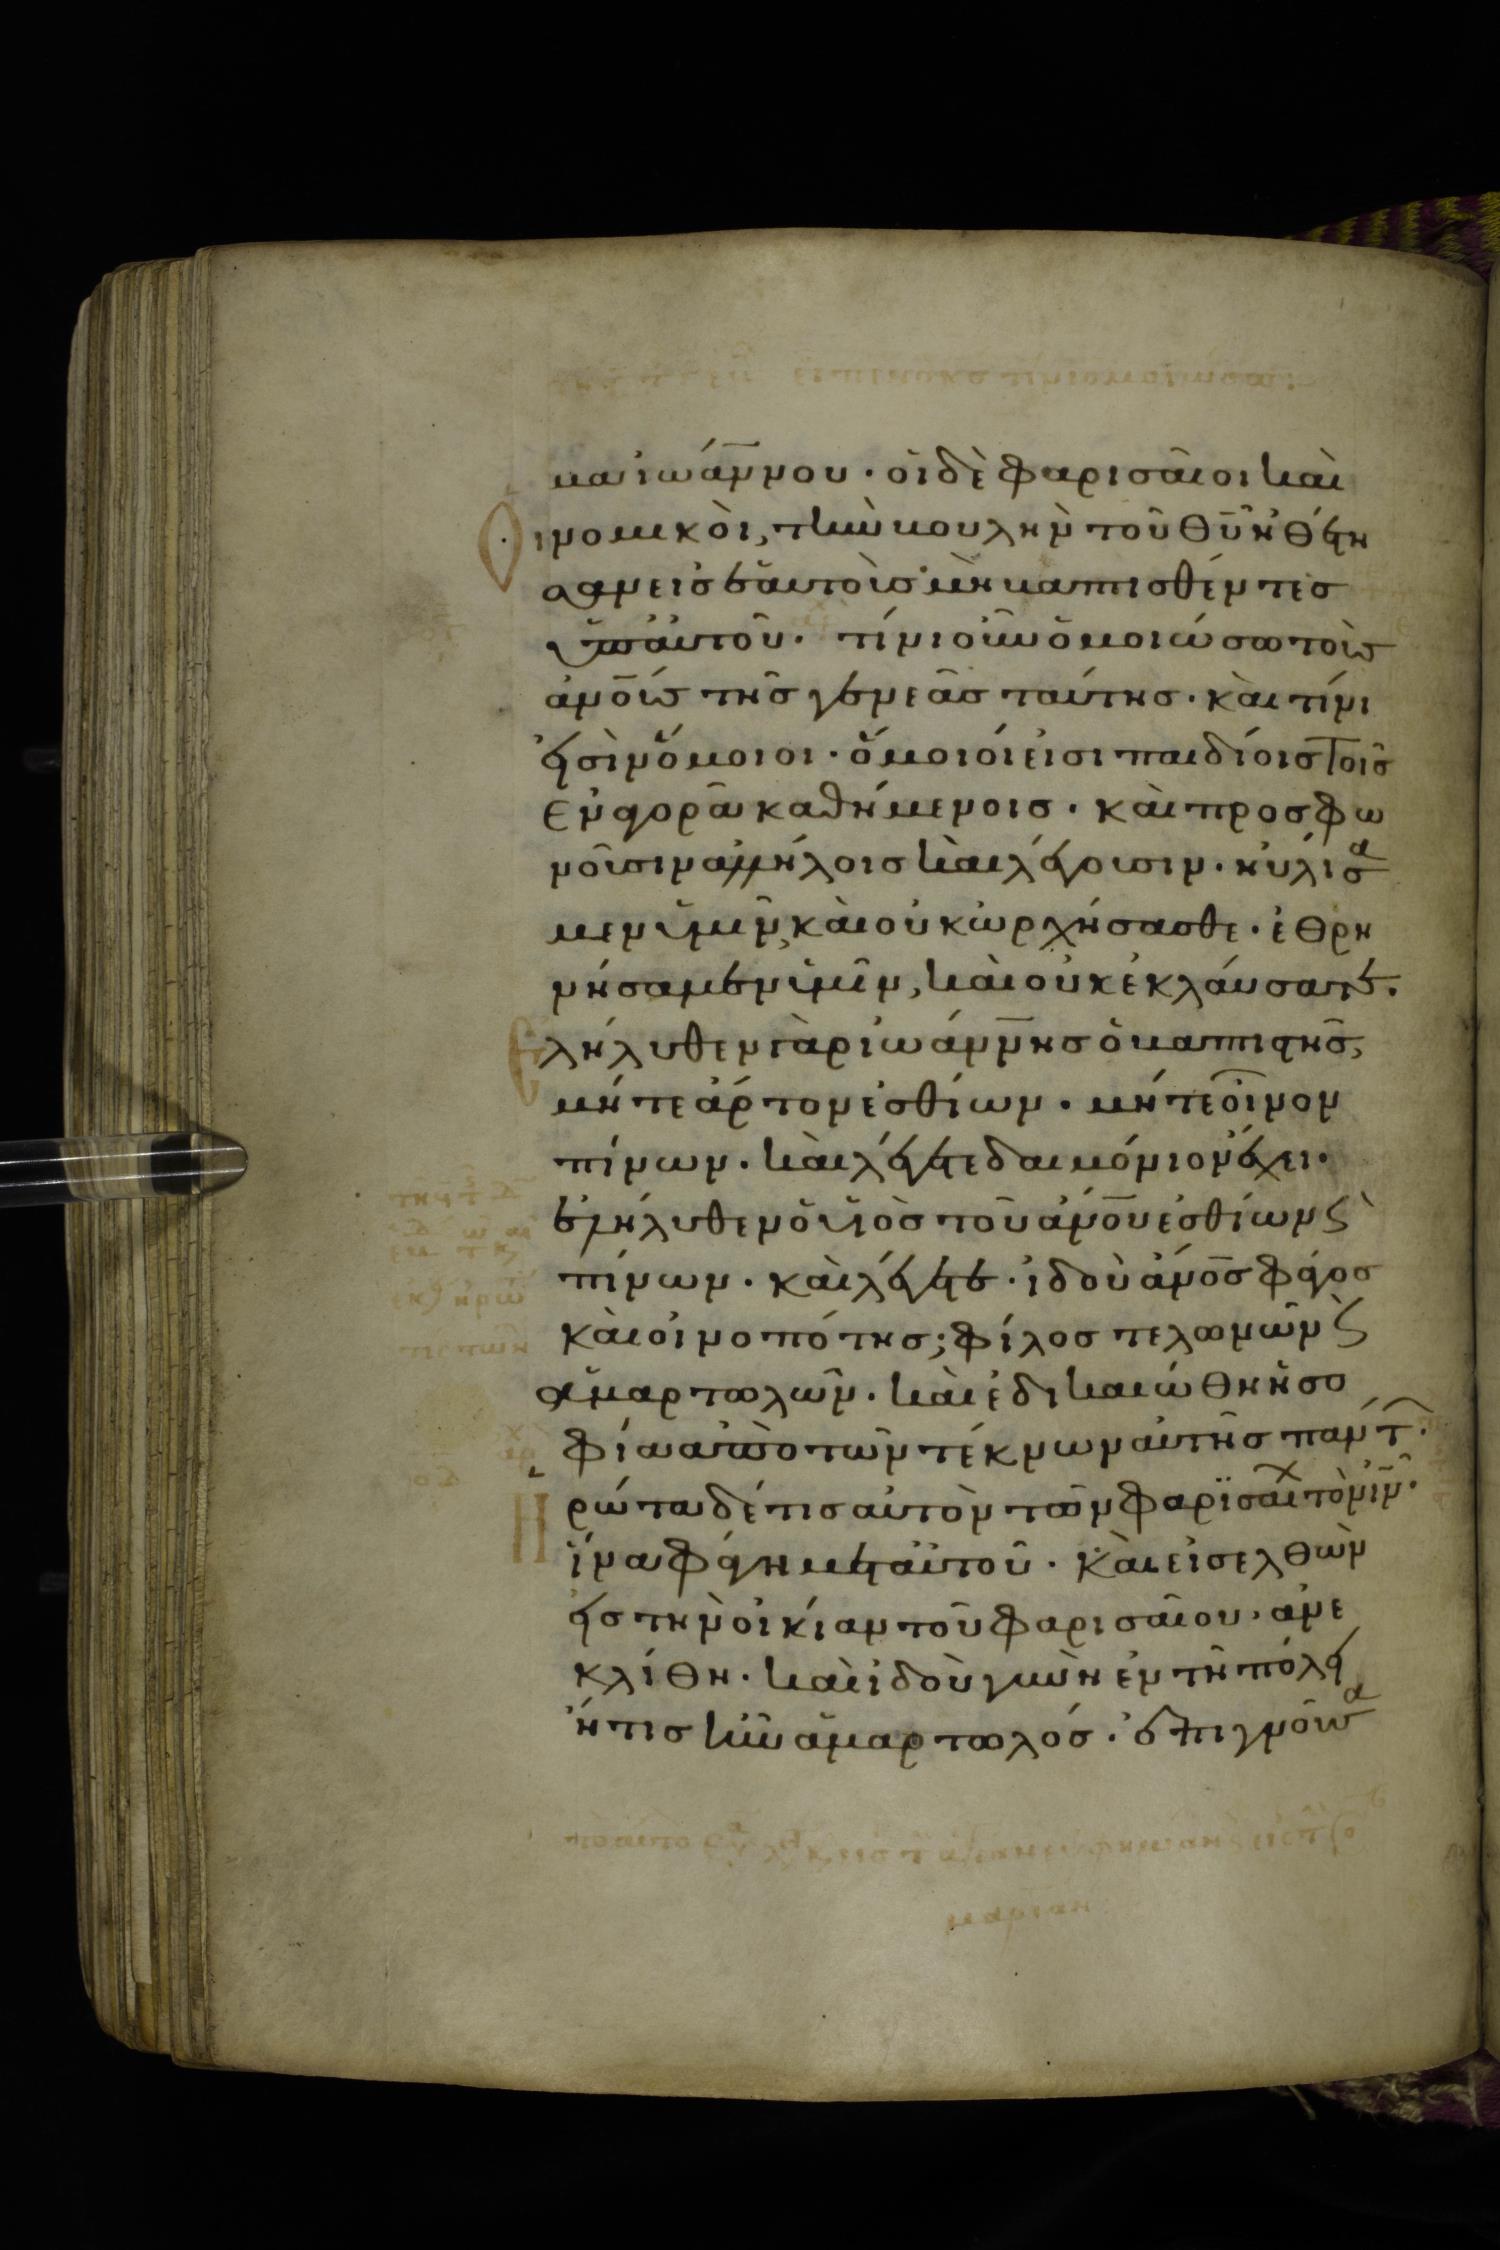 μα ἰωάννου · οἱ δὲ φαρισαῖοι καὶ
οἱ νομικοὶ, τὴν βουλὴν τοῦ θῦ ἠθέτη
σαν εἰς ἑαυτοὺς· μὴ βαπτισθέντες
ὑπ αὐτοῦ. τίνι οὖν ὁμοιώσω τοὺς
ἀνοῦς τῆς γενεᾶς ταύτης · καὶ τίνι
εἰσὶν ὅμοιοι · ὅμοιοί εἰσι παιδίοις τοῖς
ἐν ἀγορᾶ καθημένοις · καὶ προσφω
νοῦσιν ἀλλήλοις καὶ λέγουσιν · ηὐλήσα
μεν ὑμῖν, καὶ οὐκ ὠρχήσασθε · ἐθρη
νήσαμεν ὑμῖν, καὶ οὐκ ἐκλαύσατε.
ἐλήλυθεν γὰρ ἰωάννης ὁ βαπτιστῆς,
μήτε ἄρτον ἐσθίων · μήτε οἶνον
πίνων · καὶ λέγετε δαιμόνιον ἔχει ·
ἐλήλυθεν ὁ υἱὸς τοῦ ἀνου ἐσθίων ϛ
πίνων · καὶ λέγετε · ἰδοὺ ἀνος φάγος
καὶ οἰνοπότης; φίλος τελωνῶν ϛ
ἁμαρτωλῶν · καὶ ἐδικαιώθη ἡ σο
φία ἀπὸ τῶν τέκνων αὐτῆς πάντ.
Ἠρώτα δέ τις αὐτὸν τῶν φαρϊσαι τὸν ιν ·
ἵνα φάγη μετ αὐτοῦ · καὶ εἰσελθὼν
εἰς τὴν οἰκίαν τοῦ φαρισαίου, ἀνε
κλίθη · καὶ ἰδοὺ γυνὴ ἐν τῆ πόλει
ἥτις ἦν ἁμαρτωλός · ἐπιγνοῦσα